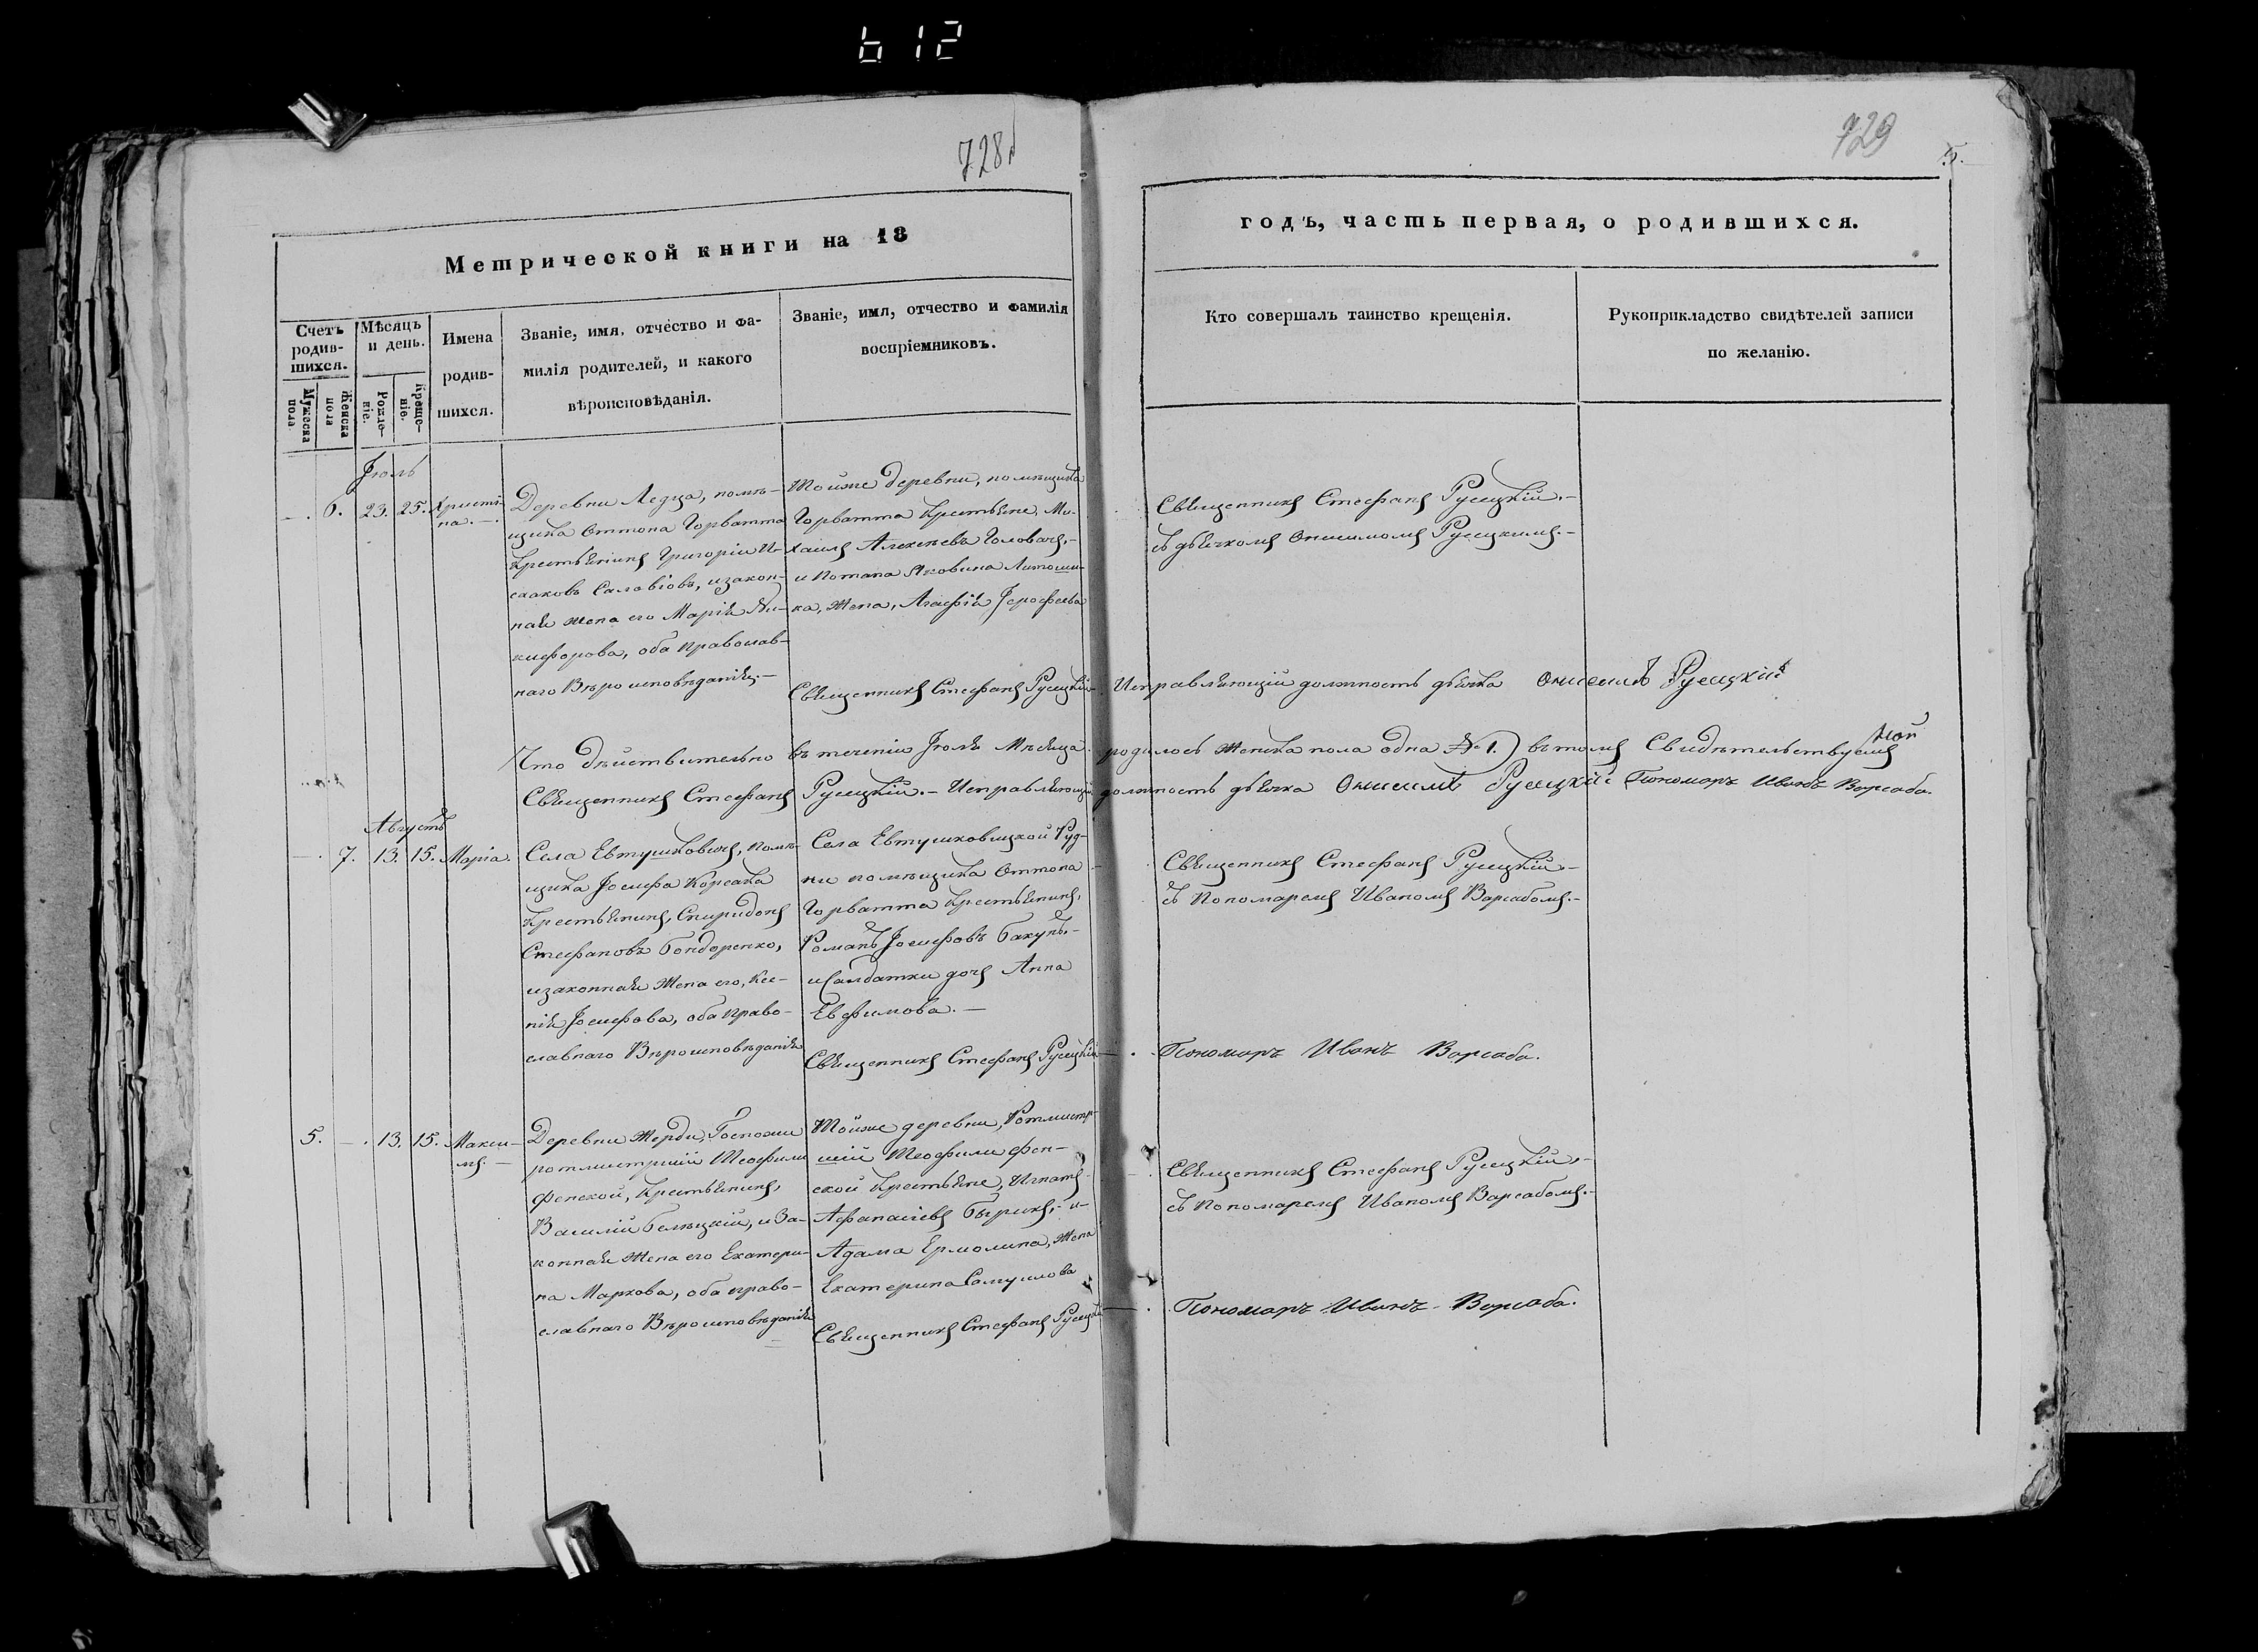 612
728
729
5.
Метрической книги на 18
годъ, часть первая, о родившихся.
Счетъ родив-шихся.
Мужеска пола.
Женска пола
Мѣсяцъ и день.
Рожде-ніе.
Креще-ніе.
Имена родив-шихся.
Званіе, имя, отчество и фа-
милія родителей, и какого
вѣроисповѣданія.
Званіе, имя, отчество и фамилія
воспріемниковъ.
Кто совершалъ таинство крещенія.
Рукоприкладство свидѣтелей записи
по желанію.
Іюль
6. 23. 25. Христи-
на.
Деревни Ледца, помѣ-
щика Оттона Горватта
крестьянинъ Григорій И-
саковъ Салавіовъ, и закон-
ная жена его Марія Ни-
кифорова, оба православ-
наго Вѣроисповѣданія.
Тойже деревни, помѣщика
Горватта крестьяне, Ми-
хаилъ Алексѣевъ Головачъ,
и Потапа Яковина
жена, Агафія Іерофеева
Священникъ Стефанъ Русецкій
Священникъ Стефанъ Русецкій.
съ дьячкомъ Онисимомъ Русецкимъ.
Исправляющій должность дьячка Онисимъ Русецкій
Что дѣйствительно въ теченіи Іюля Мѣсяца родилось женска пола одна № 1.) въ томъ Свидѣтельствуемъ
Священникъ Стефанъ Русецкій. Исправляющій должность дьячка Онисимъ Русецкій Пономаръ Иванъ Варсаба.
Августъ
7. 13. 15. Марія.
Села Евтушковичъ, помѣ-
щика Іосифа Корсака
крестьянинъ, Спиридонъ
Стефановъ Бондоренко,
и законная жена его, Ксе-
нія Іосифова, оба право-
славнаго Вѣроисповѣданія
Села Евтушковицкой Руд-
ни помѣщика Оттона
Горватта крестьянинъ,
Романъ Іосифовъ Бакунъ,
и Салдатки дочь Анна
Евфимова.
Священникъ Стефанъ Русецкій
Священникъ Стефанъ Русецкій
съ Пономаремъ Иваномъ Варсабомъ.
Пономаръ Иванъ Варсаба.
5. 13. 15. Макси-
мъ.
Деревни Жерди, Госпожи
ротмистршій Теофили
Фенской, крестьянинъ,
Василій Белецкій, и за-
конная жена его Екатери-
на Маркова, оба право-
славнаго Вѣроисповѣданія
Тойже деревни, Ротмистр-
шій Теофили Фен-
ской крестьяне, Игнатъ
Афанасіевъ Бырикъ, и
Адама Ермолина, жена
Екатерина Самуилова
Священникъ Стефанъ Русецкій
Священникъ Стефанъ Русецкій
съ Пономаремъ Иваномъ Варсабомъ.
Пономаръ Иванъ Варсаба.